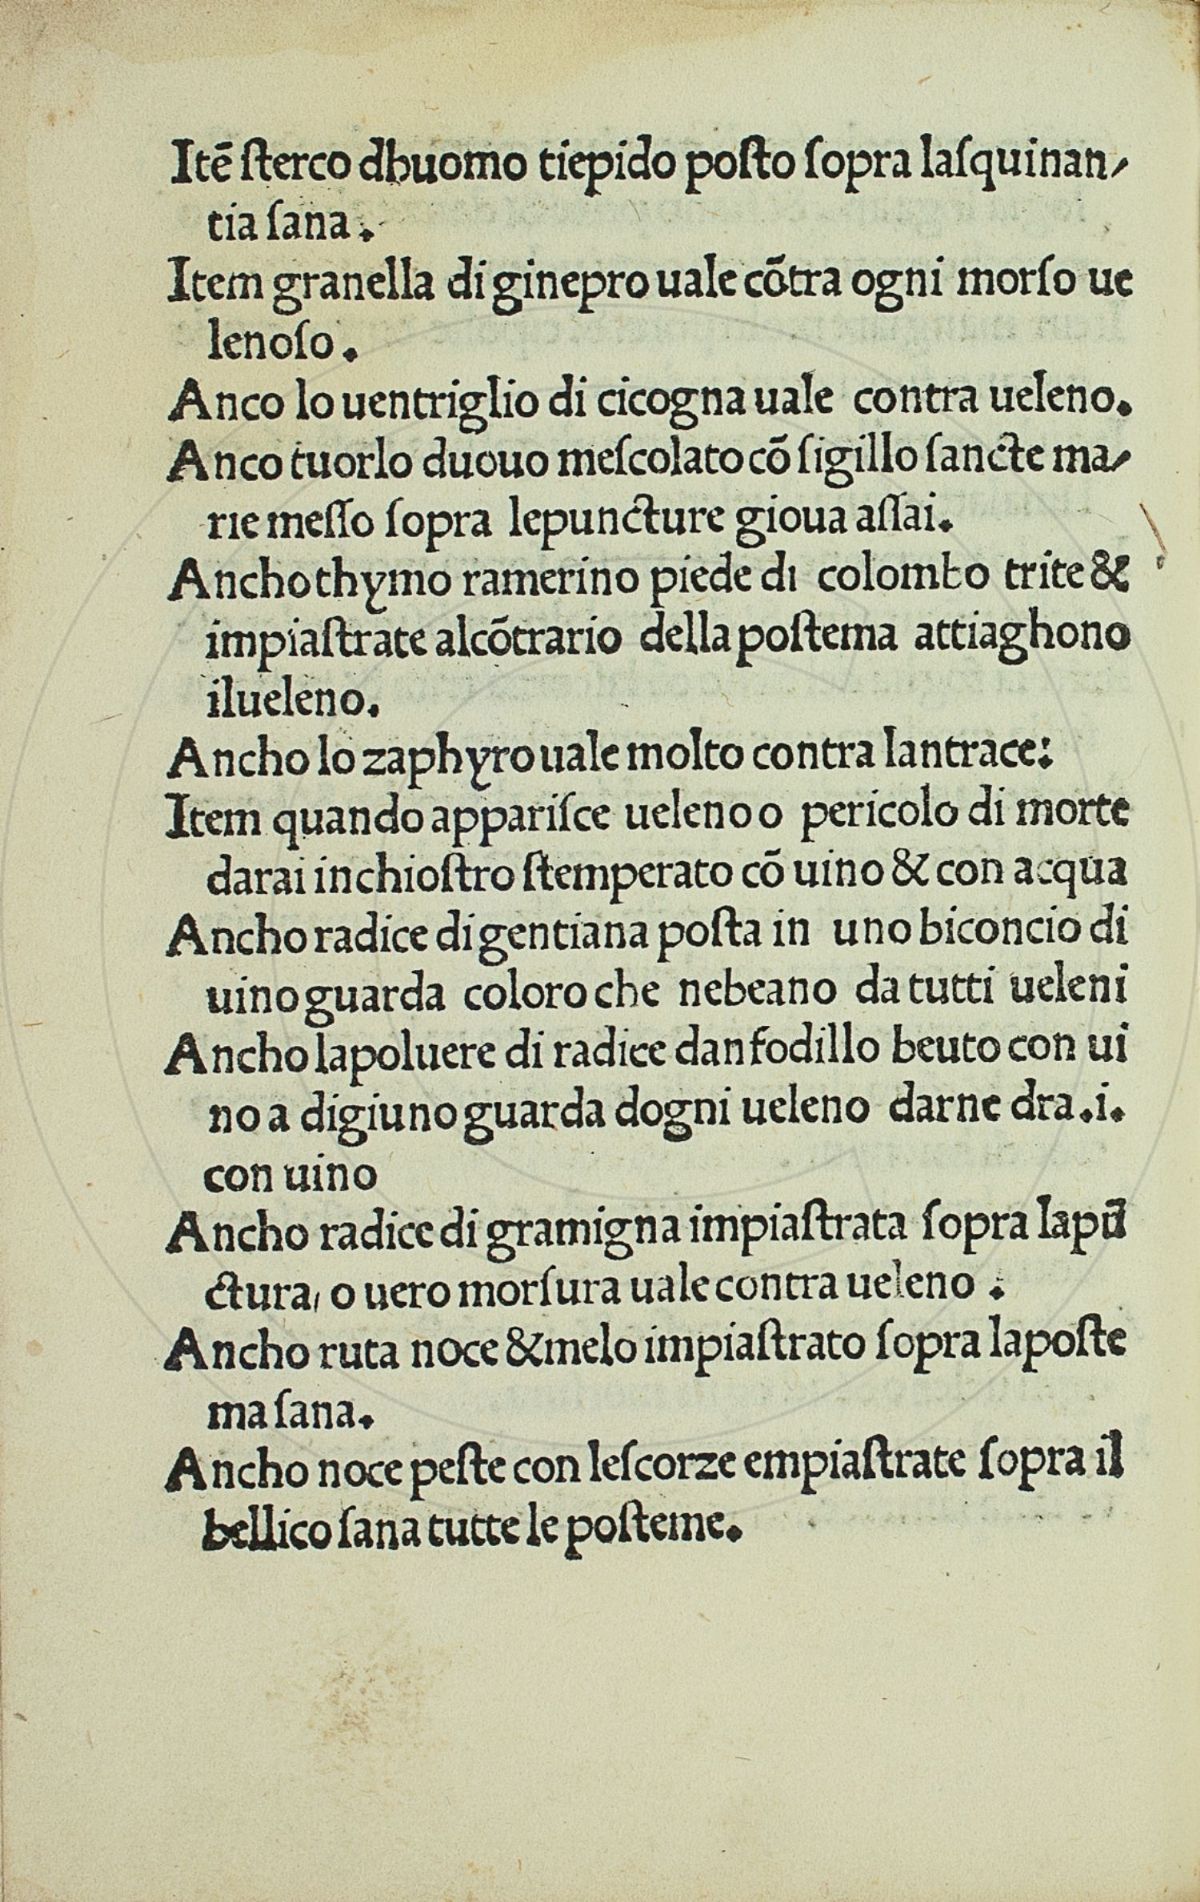 Itē ſterco dhuomo tiepido poſto ſopra laſquinan⸗
tia ſana.
Item granella di ginepro uale cōtra ogni morſo ue
lenoſo.
Anco lo uentriglio di cicogna uale contra ueleno.
Anco tuorlo duouo meſcolato cō ſigillo ſancte ma⸗
rie meſſo ſopra lepuncture gioua aſſai.
Ancho thymo ramerino piede di colombo trite &
impiaſtrate alcōtrario della poſtema attiaghono
ilueleno.
Ancho lo zaphyro uale molto contra lantrace:
Item quando appariſce ueleno o pericolo di morte
darai inchioſtro ſtemperato cō uino & con acqua
Ancho radice di gentiana poſta in uno biconcio di
uino guarda coloro che nebeano da tutti ueleni
Ancho lapoluere di radice danfodillo beuto con ui
no a digiuno guarda dogni ueleno darne dra.i.
con uino
Ancho radice di gramigna impiaſtrata ſopra lapū
ctura, o uero morſura uale contra ueleno .
Ancho ruta noce & melo impiaſtrato ſopra lapoſte
ma ſana.
Ancho noce peſte con leſcorze empiaſtrate ſopra il
bellico ſana tutte le poſteme.